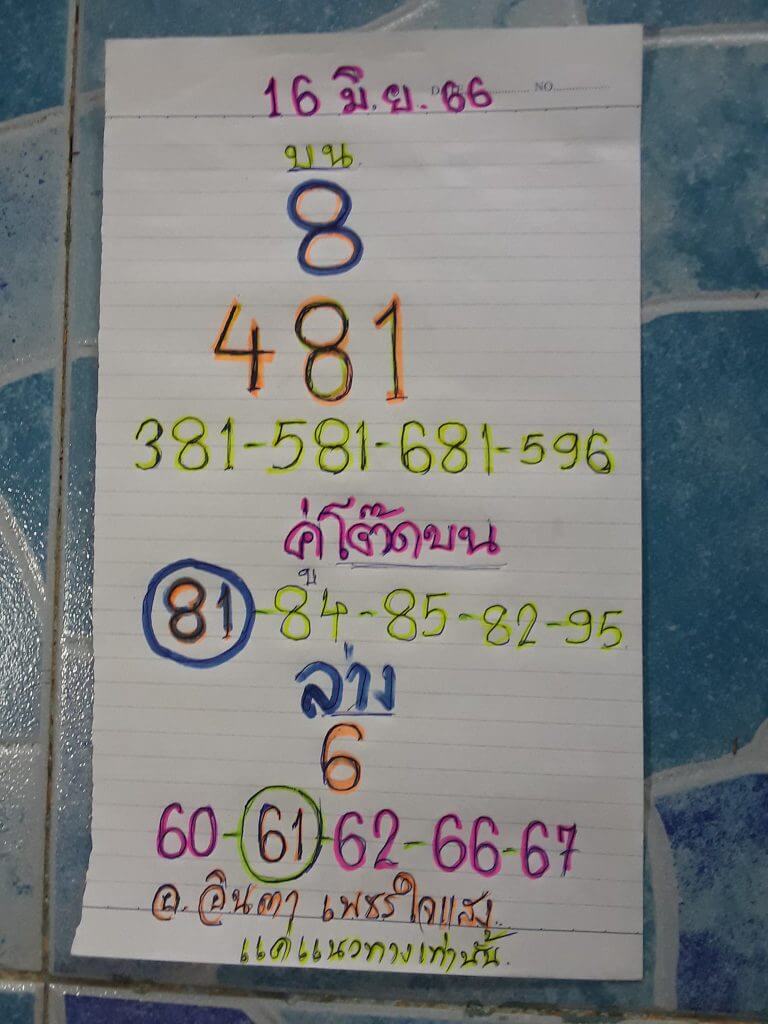 16 มิ.ย. 66
NO.
บน
8
481
381-581-681-596
คู่โต๊ดบน
81-84-85-82-95
ล่าง
6
60-61-62-66-67
อ. อินตา เพชรใจแสง.
แค่แนวทางเท่านั้น.